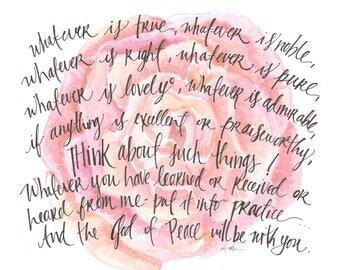 whatever is true, whatever is noble,
whatever is right, whatever is pure,
whatever is lovely, whatever is admirable,
if anything is excellent or praiseworthy,
Think about such things!
Whatever you have learned or received or
heard from me- put it into practice...
And the God of Peace will be with you.